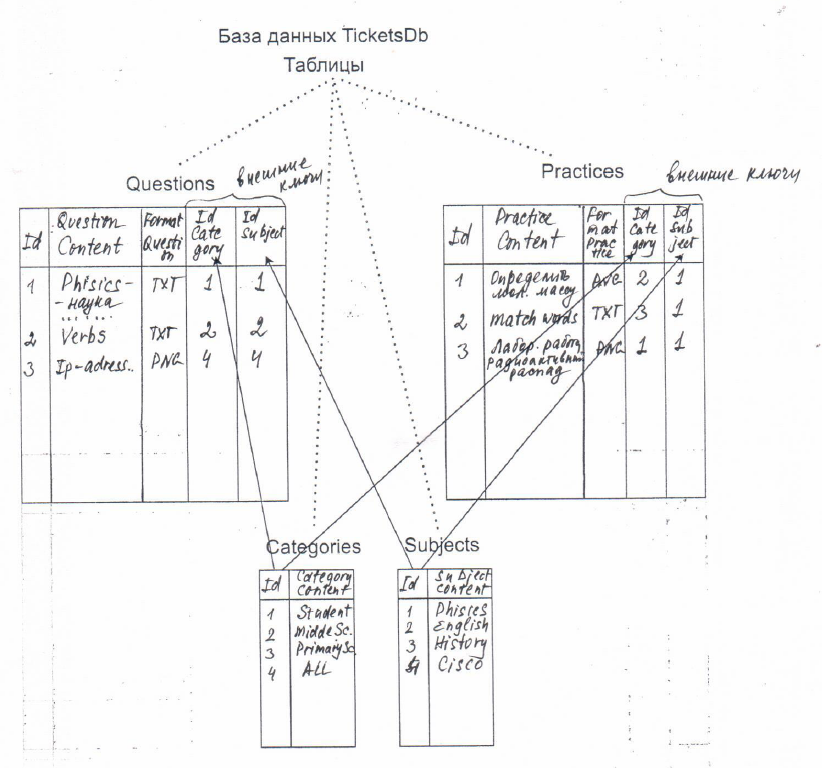 База данных TicketsDb
Таблицы
Questions
внешние
ключи
Id
Question
Content
Format
Questi
on
Id
Cate
gory
Id
Subject
1 Phisics- TXT 1 1
-наука
2 Verbs TXT 2 2
3 Ip-adress.. PNG 4 4
Practices
внешние ключи
Id
Practice
Content
For
mat
Prac
tice
Id
Cate
gory
Id
Sub
ject
1 Определить 2 1
мол. массу
2 match words TXT 3 1
3 Лабор. работа PNG 1 1
радиоактивный
распад
Categories
Id
Category
Content
1 Student
2 Midde Sc.
3 Primary Sc.
4 ALL
Subjects
Id
Subject
content
1 Phisics
2 English
3 History
4 Cisco